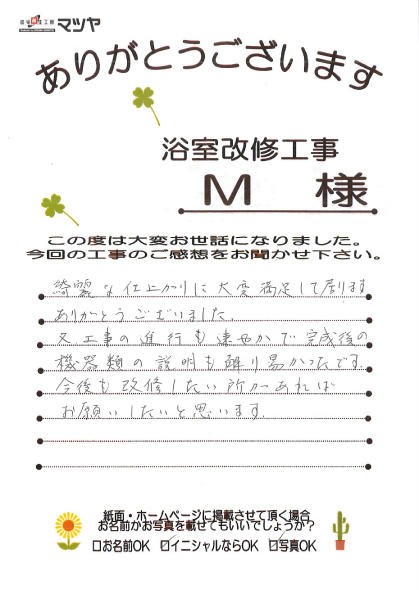 マツヤ
ありがとうございます
浴室改修工事
M 様
この度は大変お世話になりました。
今回の工事のご感想をお聞かせ下さい。
綺麗な仕上がりに大変満足して居ります
ありがとうございました。
又工事の進行も速やかで完成後の
機器類の説明も解り易かったです。
今後も改修したい所があれば
お願いしたいと思います。
紙面・ホームページに掲載させて頂く場合
お名前やお写真を載せてもいいでしょうか？
□お名前OK ☑イニシャルならOK ☑写真OK